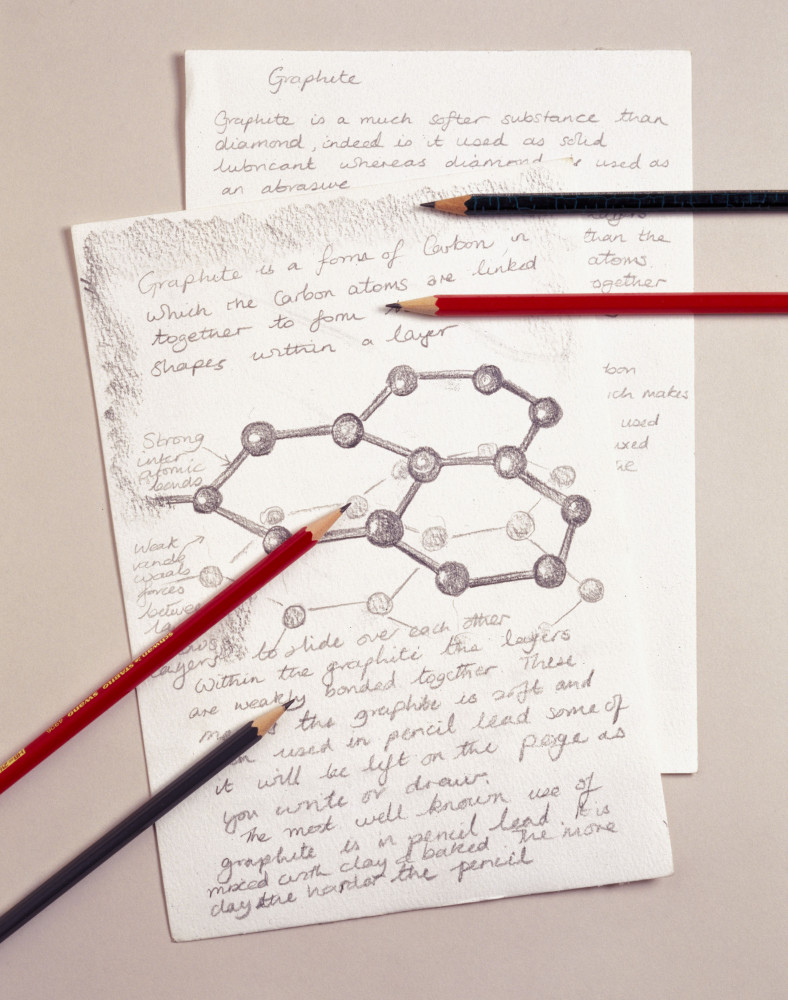 Graphite
Graphite is a much softer substance than
diamond, indeed is it used as solid
lubricant whereas diamond is used as
an abrasive
layers
than the
atoms.
ogether
Graphite is a form of Carbon in
which the Carbon atoms are linked
together to form
shapes within a layer
bon
ich makes
used
ixed
Strong
inter
atomic
bonds
Weak
vands
waals
forces
between
la
layers to slide over each other
Within the graphite the layers
are weakly bonded together These
the graphite is soft and
used in pencil lead some of
it will be left on the page as
you write or draw.
The most well known use of
graphite is in pencil lead. It is
mixed with clay & baked. The more
clay the harder the pencil